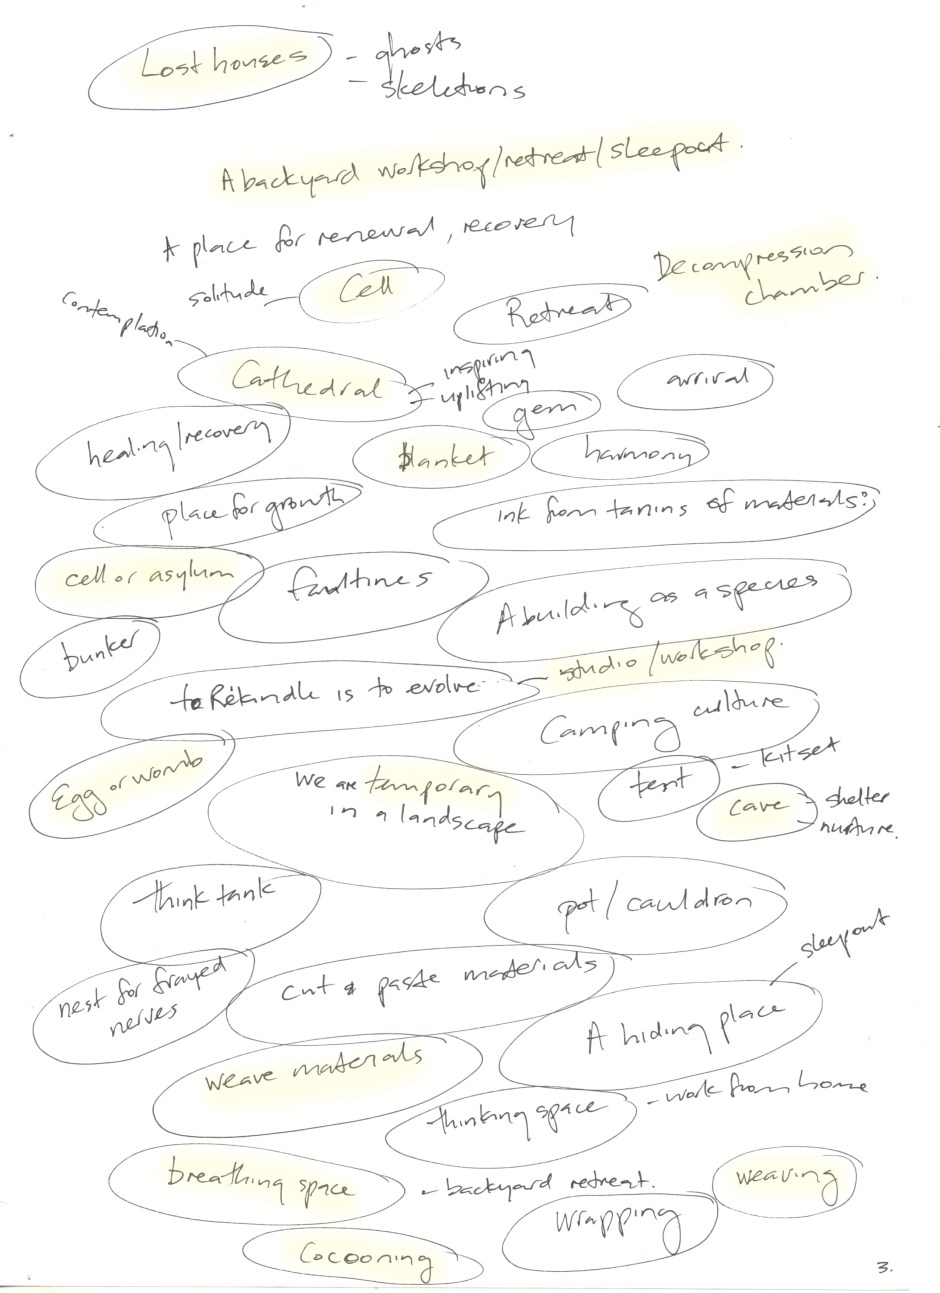 Lost houses
- ghosts
- skeletons
A backyard workshop/retreat/sleepout.
A place for renewal, recovery
solitude
Cell
Decompression
chamber.
Contemplation
Retreat
Cathedral
inspiring
uplifting
arrival
gem
healing/recovery
blanket
harmony
place for growth
ink from tanins of materials?
cell or asylum
faultlines
A building as a species
bunker
studio/workshop.
to Rekindle is to evolve
Camping culture
Egg or womb
We are temporary
in a landscape
tent
- kitset
cave
shelter
nurture.
think tank
pot/cauldron
sleepout
nest for frayed
nerves
cut & paste materials
A hiding place
weave materials
thinking space
- work from home
breathing space
- backyard retreat.
weaving
wrapping
Cocooning
3.